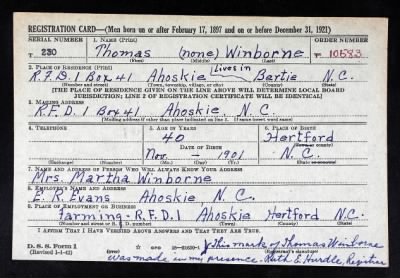 REGISTRATION CARD—(Men born on or after February 17, 1897 and on or before December 31, 1921)
SERIAL NUMBER 1. NAME (Print) ORDER NUMBER
T 230 Thomas (none) Winborne T 10583
(First) (Middle) (Last)
2. PLACE OF RESIDENCE (Print)
R.F.D. 1 Box 41 Ahoskie Lives in Bertie N.C.
(Number and street) (Town, township, village, or city) (County) (State)
[THE PLACE OF RESIDENCE GIVEN ON THE LINE ABOVE WILL DETERMINE LOCAL BOARD
JURISDICTION; LINE 2 OF REGISTRATION CERTIFICATE WILL BE IDENTICAL]
3. MAILING ADDRESS
R.F.D. 1 Box 41 Ahoskie, N.C.
[Mailing address if other than place indicated on line 2. If same insert word same]
4. TELEPHONE 5. AGE IN YEARS 6. PLACE OF BIRTH
40 Hertford
DATE OF BIRTH (Town or county)
Nov. - 1901 N.C.
(Exchange) (Number) (Mo.) (Day) (Yr.) (State or country)
7. NAME AND ADDRESS OF PERSON WHO WILL ALWAYS KNOW YOUR ADDRESS
Mrs. Martha Winborne
8. EMPLOYER'S NAME AND ADDRESS
E. R. Evans Ahoskie, N.C.
9. PLACE OF EMPLOYMENT OR BUSINESS
farming - R.F.D. 1 Ahoskie Hertford N.C.
(Number and street or R. F. D. number) (Town) (County) (State)
I AFFIRM THAT I HAVE VERIFIED ABOVE ANSWERS AND THAT THEY ARE TRUE.
D. S. S. Form 1
(Revised 1-1-42) GPO This mark of Thomas Winborne
was made in my presence. Ruth E. Hurdle, Registrar